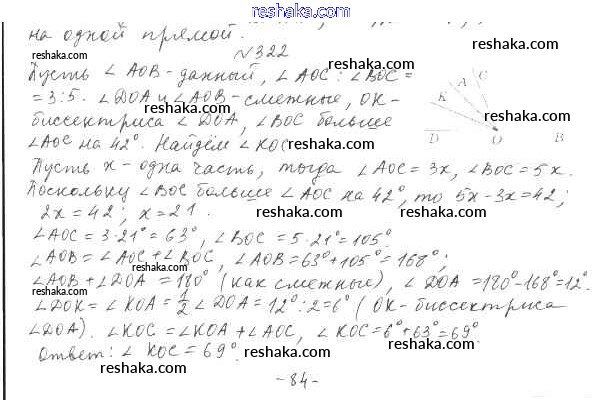 reshaka.com
на одной прямой.
reshaka.com
N 322
reshaka.com
Пусть ∠ AOB - данный, ∠ AOC : ∠ BOC =
= 3:5. ∠ DOA и ∠ AOB - смежные, OK -
биссектриса ∠ DOA, ∠ BOC больше
∠ AOC на 42°. Найдём ∠ KOC
K A C
D O B
reshaka.com
reshaka.com
reshaka.com
Пусть x - одна часть, тогда ∠ AOC = 3x, ∠ BOC = 5x.
reshaka.com
Поскольку ∠ BOC больше ∠ AOC на 42°, то 5x - 3x = 42;
2x = 42; x = 21.
reshaka.com
∠ AOC = 3·21° = 63°, ∠ BOC = 5·21° = 105°
reshaka.com
∠ AOB = ∠ AOC + ∠ BOC, ∠ AOB = 63° + 105° = 168°;
reshaka.com
∠ AOB + ∠ DOA = 180° (как смежные), ∠ DOA = 180° - 168° = 12°.
reshaka.com
∠ DOK = ∠ KOA = 1/2 ∠ DOA = 12° : 2 = 6° (OK - биссектриса
reshaka.com
∠ DOA). ∠ KOC = ∠ KOA + ∠ AOC, ∠ KOC = 6° + 63° = 69°
reshaka.com
Ответ: ∠ KOC = 69°.
reshaka.com
reshaka.com
- 84 -